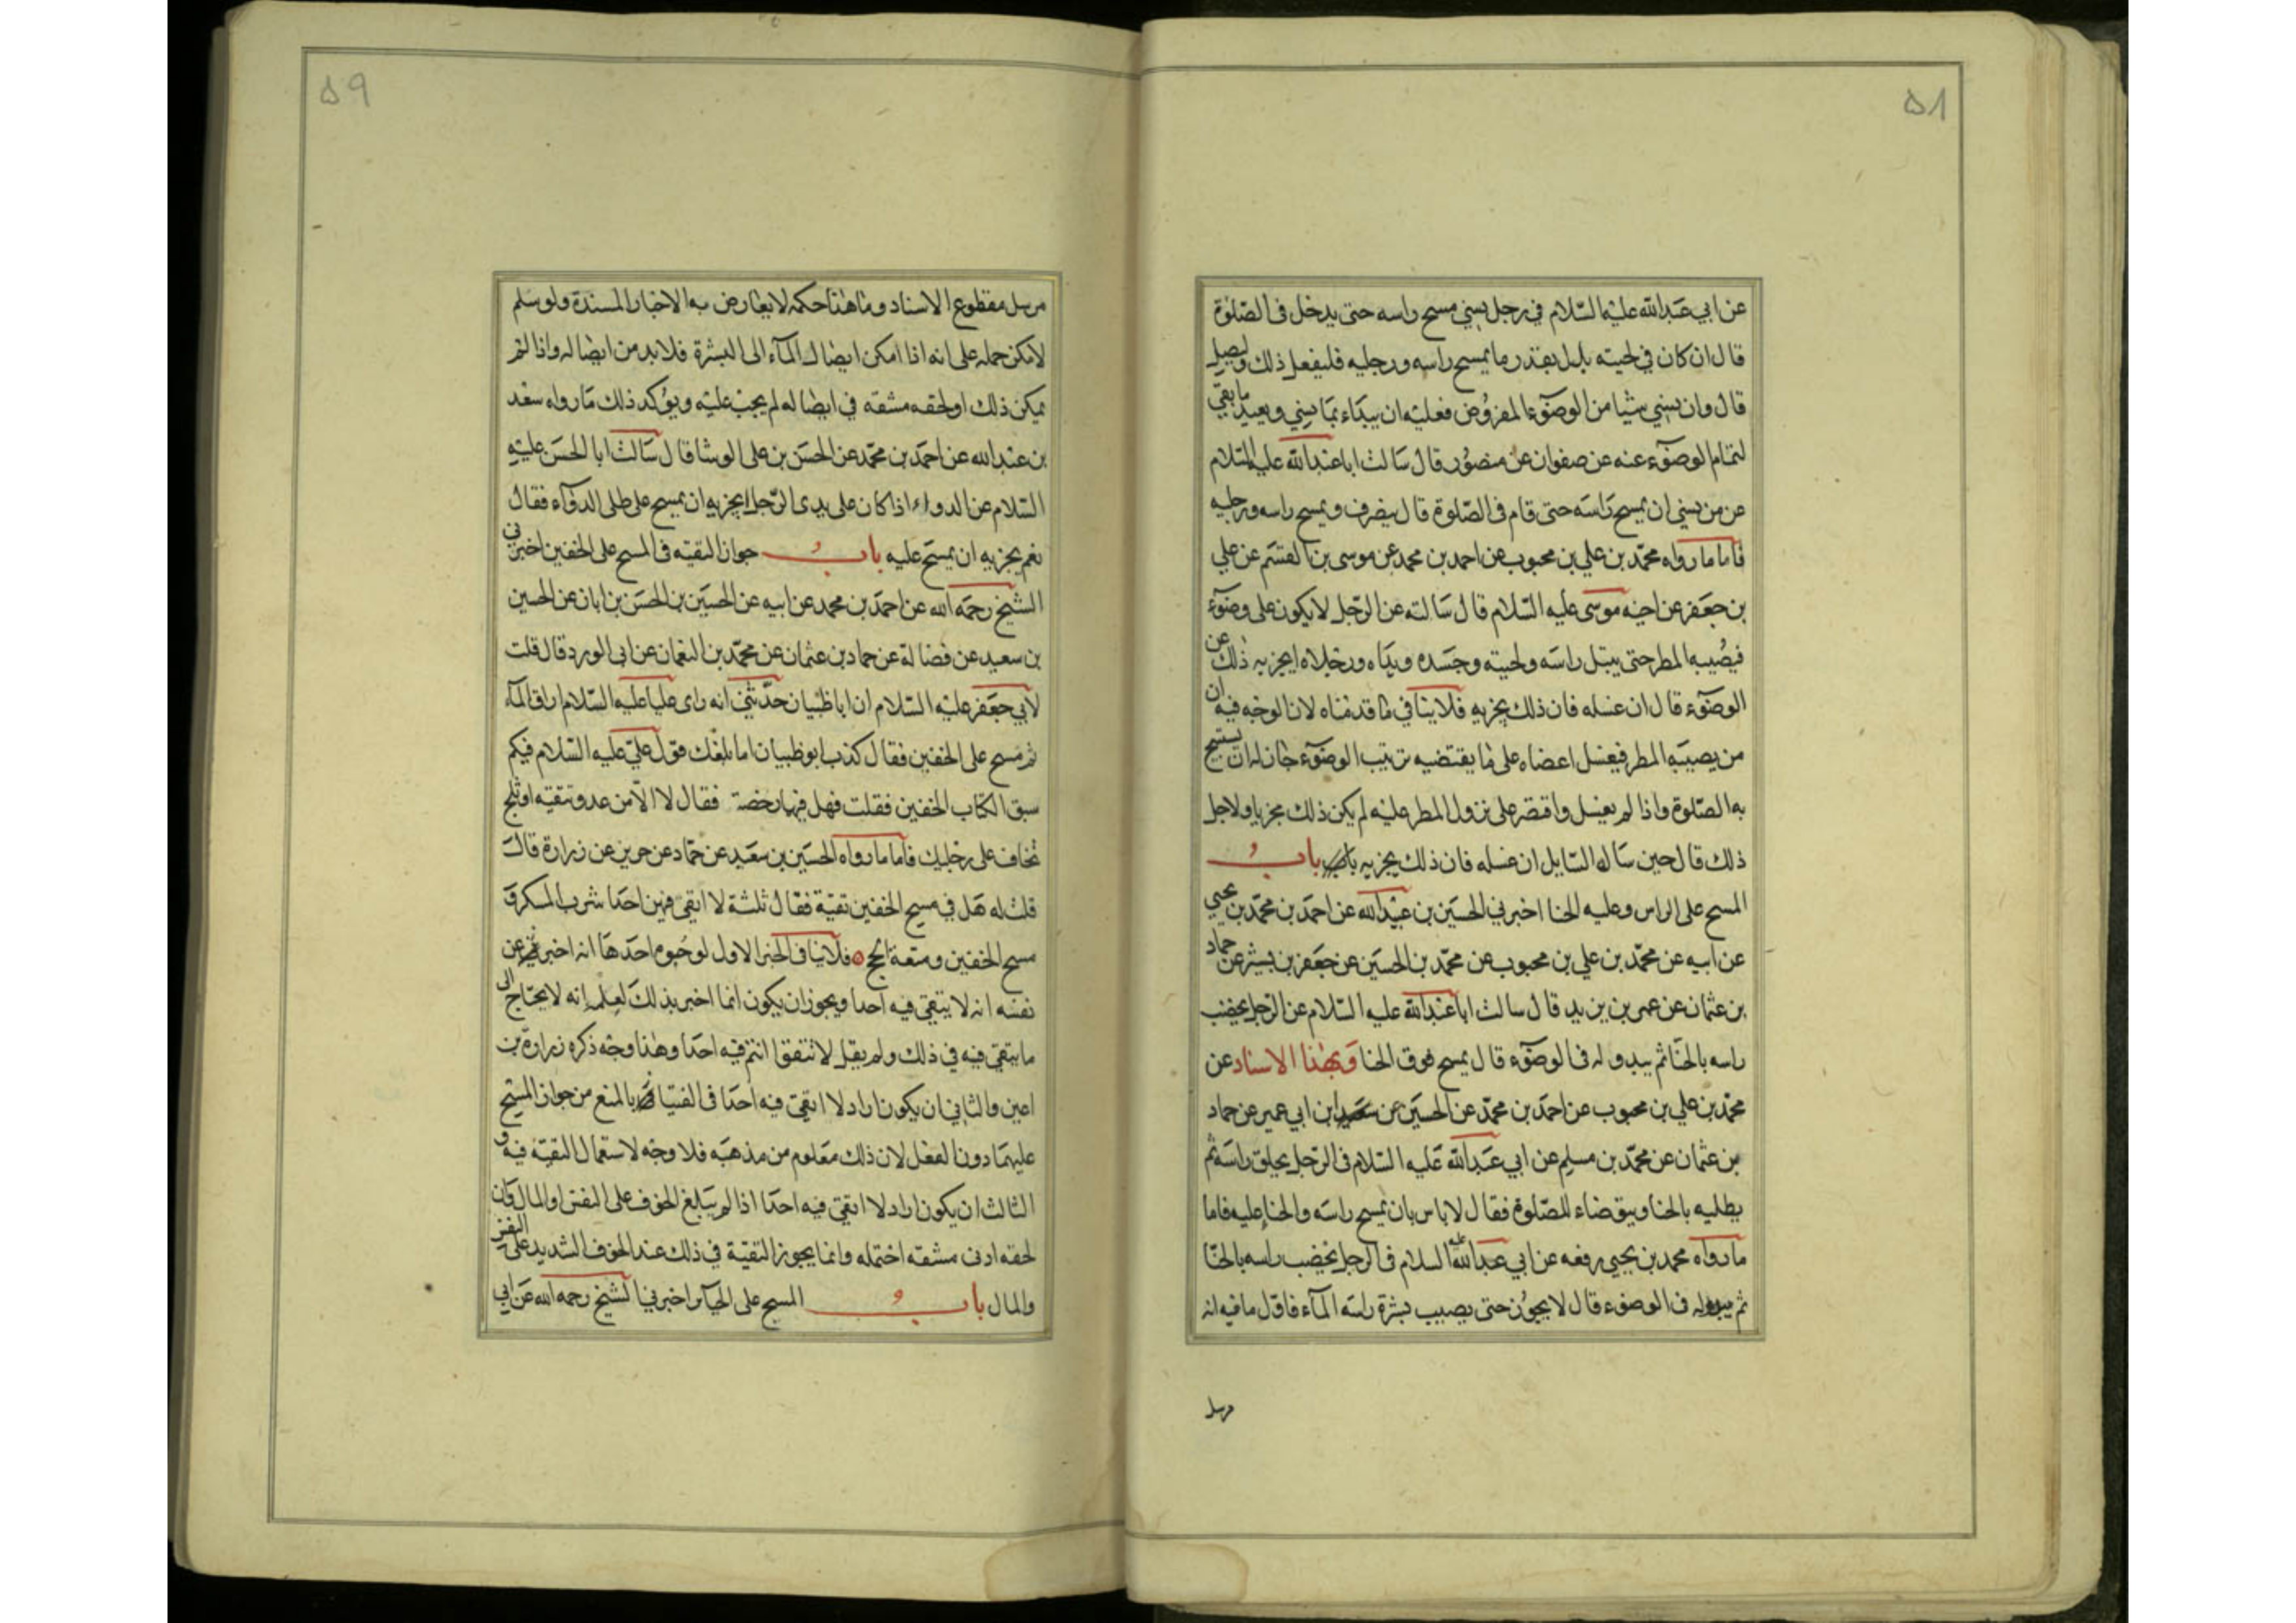 ۵۸
عن ابي عبدالله عليه السّلام في رجل ينسي مسح راسه حتى يدخل في الصّلوة
قال ان كان في لحيته بلل بقدر ما يمسح راسه ورجليه فليفعل ذلك وليصل
قال وان نسي شيا من الوضوء المفروض فعليه ان يبداء بما نسي ويعيد ما بقي
لتمام الوضوء عنه عن صفوان عن منصور قال سالت اباعبدالله عليه السّلام
عن من نسي ان يمسح راسه حتى قام في الصّلوة قال ينصرف ويمسح راسه ورجليه
فاما ما رواه محمّد بن علي بن محبوب عن احمد بن محمد عن موسى بن القسم عن علي
بن جعفر عن اخيه موسى عليه السّلام قال سالته عن الرّجل لا يكون على وضوء
فيصيبه المطر حتى يبتل راسه ولحيته وجسده ويداه ورجلاه ايجزيه ذلك عن
الوضوء قال ان غسله فان ذلك يجزيه فلا ينافي ما قدمناه لان الوجه فيه ان
من يصيبه المطر فيغسل اعضاه على ما يقتضيه ترتيب الوضوء جاز له ان يستبيح
به الصّلوة واذا لم يغسل واقتصر على نزول المطر عليه لم يكن ذلك مجزيا ولاجل
ذلك قال حين ساله السّايل ان غسله فان ذلك يجزيه باب
المسح على الراس وعليه الحنا اخبرني الحسين بن عبيدالله عن احمد بن محمّد بن يحيي
عن ابيه عن محمّد بن علي بن محبوب عن محمّد بن الحسين عن جعفر بن بشير عن حماد
بن عثمان عن عمر بن يزيد قال سالت اباعبدالله عليه السّلام عن الرّجل يخضب
راسه بالحنّا ثم يبدو له في الوضوء قال يمسح فوق الحنا وبهذا الاسناد عن
محمّد بن علي بن محبوب عن احمد بن محمّد عن الحسين عن ابن ابي عمير عن حماد
بن عثمان عن محمّد بن مسلم عن ابي عبدالله عليه السّلام في الرّجل يحلق راسه ثم
يطليه بالحنا ويتوضاء للصّلوة فقال لا باس بان يمسح راسه والحنا عليه فاما
ما رواه محمد بن يحيي رفعه عن ابي عبدالله عليه السلام في الرجل يخضب راسه بالحنّا
ثم يبدو له في الوضوء قال لا يجوز حتى يصيب بشرة راسه المآء فاوّل ما فيه انه
مرسل
۵۹
مرسل مقطوع الاسناد وما هذا حكمه لا يعارض به الاخبار المسندة ولو سلم
لامكن حمله على انه اذا امكن ايصال المآء الى البشرة فلا بد من ايصاله واذا لم
يمكن ذلك او لحقه مشقه في ايصاله لم يجب عليه ويؤكد ذلك ما رواه سعد
بن عبدالله عن احمد بن محمّد عن الحسن بن على الوشا قال سالت ابا الحسن عليه
السّلام عن الدواء اذا كان على يدى الرّجل ايجزيه ان يمسح على طلى الدوآء فقال
نعم يجزيه ان يمسح عليه باب جواز التقيته في المسح على الخفين اخبرني
الشيخ رحمه الله عن احمد بن محمد عن ابيه عن الحسين بن الحسن بن ابان عن الحسين
بن سعيد عن فضالة عن حماد بن عثمان عن محمّد بن النعمان عن ابى الورد قال قلت
لابي جعفر عليه السّلام ان اباظبيان حدّثني انه راى عليا عليه السّلام اراق المآء
ثم مسح على الخفين فقال كذب ابوظبيان اما بلغك قول علىّ عليه السّلام فيكم
سبق الكتاب الخفين فقلت فهل فيهما رخصة فقال لا الّا من عدو تتقيه او ثلج
تخاف على رجليك فاما ما رواه الحسين بن سعيد عن حمّاد عن حريز عن زرارة قال
قلت له هل في مسح الخفين تقيّة فقال ثلثة لا اتقي فيهن احدا شرب المسكر و
مسح الخفين ومتعة الحج فلا ينافى الخبر الاول لوجوه احدها انه اخبر عن
نفسه انه لا يتقي فيه احدا ويجوز ان يكون انما اخبر بذلك لعلمه انه لا يحتاج الى
ما يتقي فيه في ذلك ولم يقل لا تتقوا انتم فيه احدا وهذا وجه ذكره زرارة بن
اعين والثاني ان يكون اراد لا اتقى فيه احدا في الفتيا بالمنع من جواز المسح
عليهما دون الفعل لان ذلك معلوم من مذهبه فلا وجه لاستعمال التقيّة فيه و
الثالث ان يكون اراد لا اتقي فيه احدا اذا لم يبلغ الخوف على النفس او المال فان
لحقه ادنى مشقه احتمله وانما يجوز التقيّة في ذلك عند الخوف الشديد على النفس
والمال باب المسح على الجبآير اخبرني الشيخ رحمه الله عن ابي